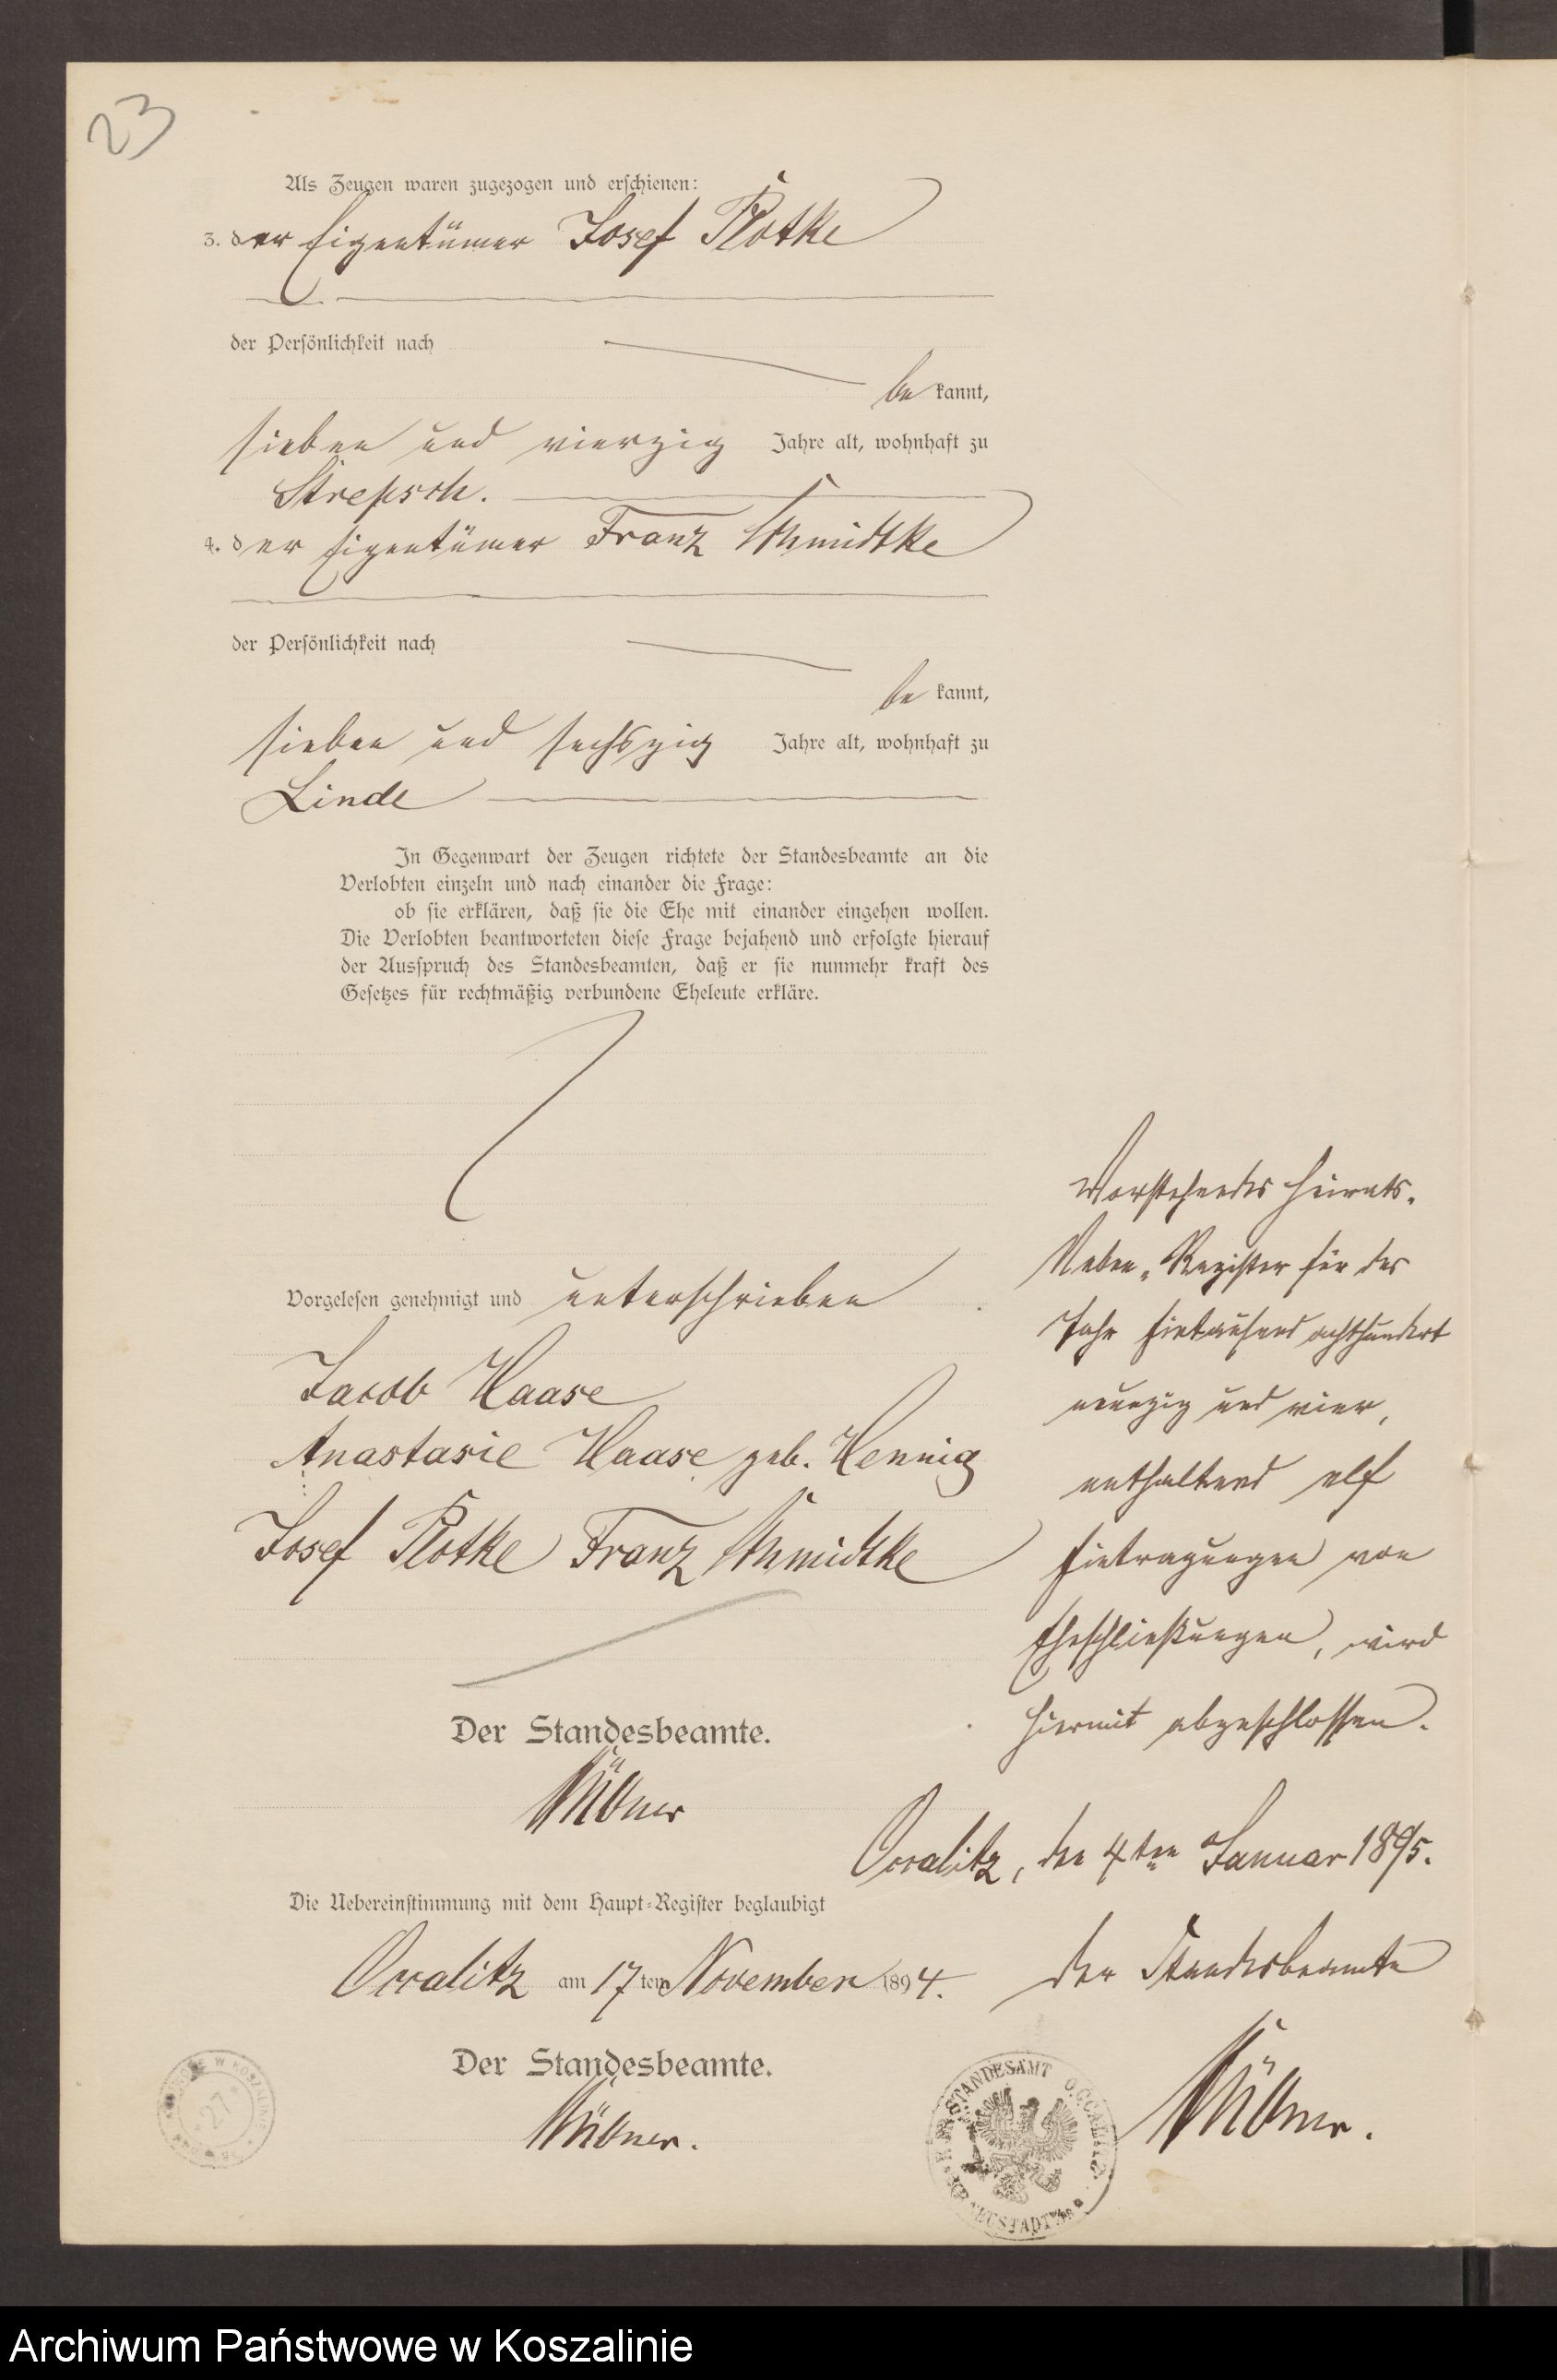 23
Als Zeugen waren zugezogen und erschienen:
3. der Eigentümer Josef Plotke
der Persönlichkeit nach
be kannt,
sieben und vierzig Jahre alt, wohnhaft zu
Strepsch.
4. der Eigentümer Franz Schmidtke
der Persönlichkeit nach
be kannt,
sieben und sechszig Jahre alt, wohnhaft zu
Linde
In Gegenwart der Zeugen richtete der Standesbeamte an die
Verlobten einzeln und nach einander die Frage:
ob sie erklären, daß sie die Ehe mit einander eingehen wollen.
Die Verlobten beantworteten diese Frage bejahend und erfolgte hierauf
der Ausspruch des Standesbeamten, daß er sie nunmehr kraft des
Gesetzes für rechtmäßig verbundene Eheleute erkläre.
Vorgelesen genehmigt und unterschrieben
Jacob Haase
Anastasie Haase geb. Hennig
Josef Plotke Franz Schmidtke
Der Standesbeamte.
Die Uebereinstimmung mit dem Haupt-Register beglaubigt
Occalitz am 17 ten November 1894.
Der Standesbeamte.
Vorstehendes Heirats-
Neben-Register für das
Jahr Eintausend achthundert
neunzig und vier,
enthaltend elf
Eintragungen von
Eheschließungen, wird
hiermit abgeschlossen.
Occalitz, den 4ten Januar 1895.
Der Standesbeamte
STANDESAMT OCCALITZ
NEUSTADT
W KOSZALINIE
27
Archiwum Państwowe w Koszalinie